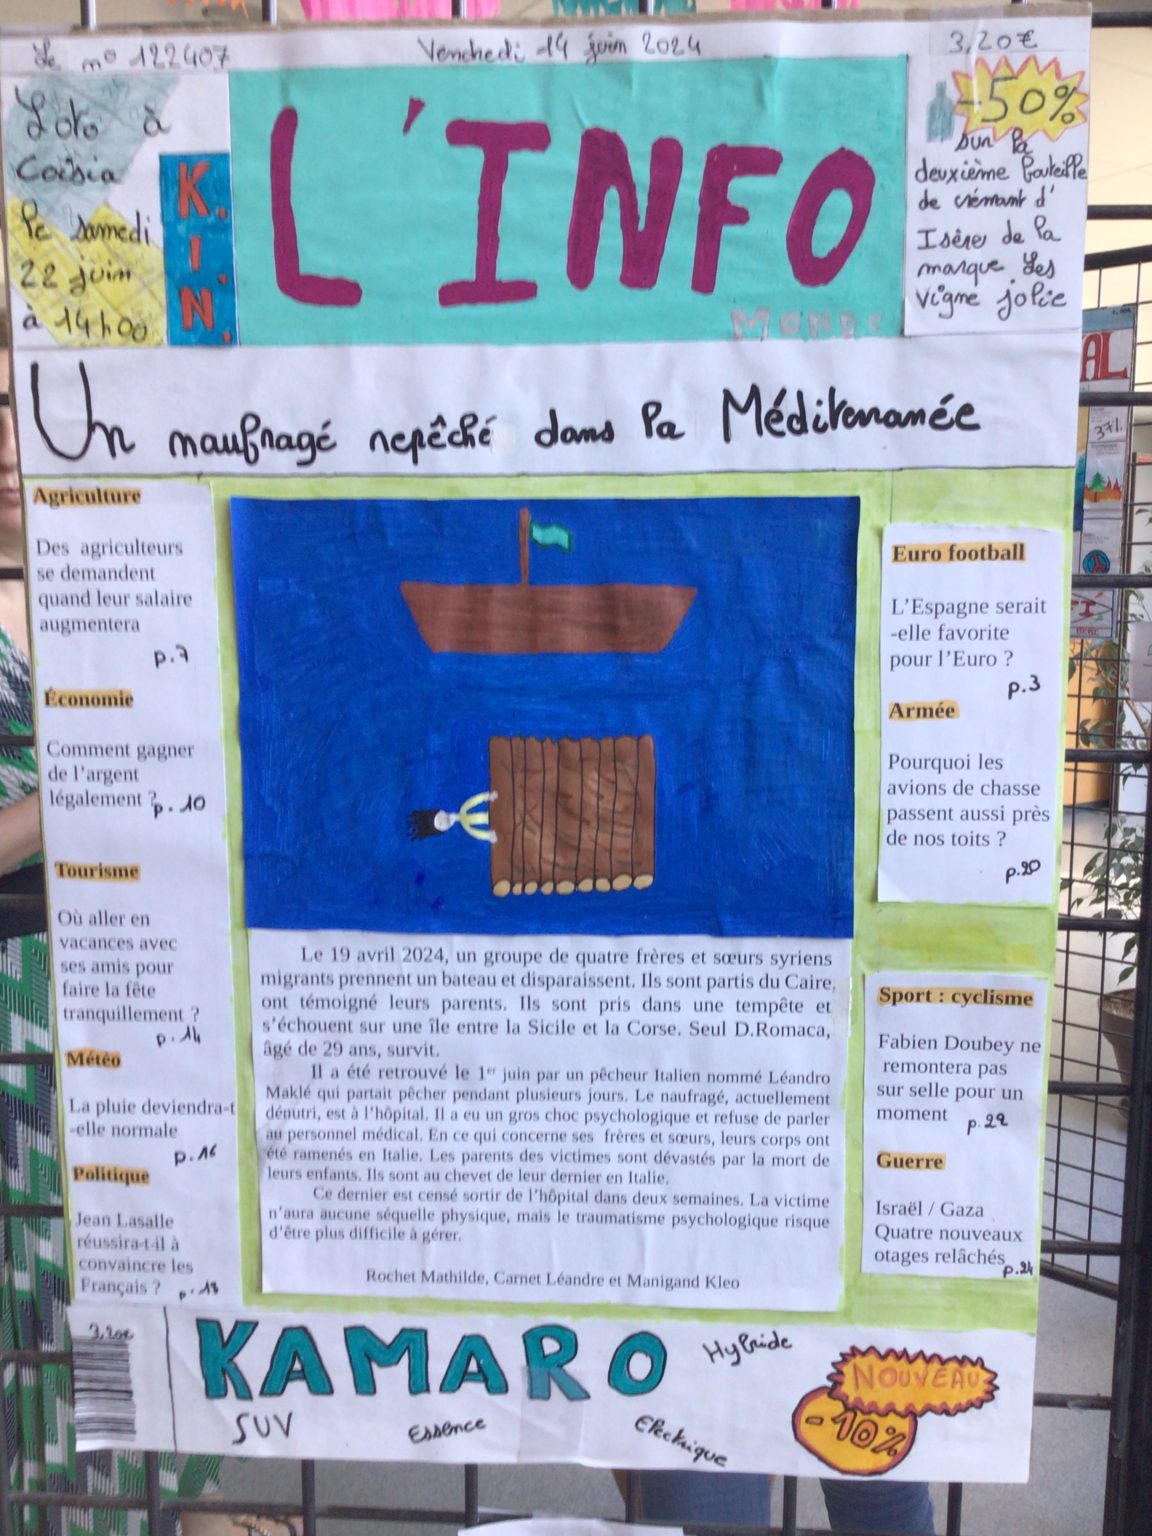 Le n° 122407
Venchedi 14 juin 2024
3,20€
Loto à
Coisia
le samedi
22 juin
à 14h00
K.
I.
N.
L'INFO
MONDE
-50%
sur la
deuxième bouteille
de crémant d'
Isère de la
marque Les
vigne jolie
Un naufragé repêché dans la Méditerranée
Agriculture
Des agriculteurs
se demandent
quand leur salaire
augmentera
p.7
Économie
Comment gagner
de l'argent
légalement ?
p.10
Tourisme
Où aller en
vacances avec
ses amis pour
faire la fête
tranquillement ?
p.14
Météo
La pluie deviendra-t
-elle normale
p.16
Politique
Jean Lasalle
réussira-t-il à
convaincre les
Français ?
p.18
Le 19 avril 2024, un groupe de quatre frères et sœurs syriens
migrants prennent un bateau et disparaissent. Ils sont partis du Caire,
ont témoigné leurs parents. Ils sont pris dans une tempête et
s'échouent sur une île entre la Sicile et la Corse. Seul D.Romaca,
âgé de 29 ans, survit.
Il a été retrouvé le 1er juin par un pêcheur Italien nommé Léandro
Maklé qui partait pêcher pendant plusieurs jours. Le naufragé, actuellement
députri, est à l'hôpital. Il a eu un gros choc psychologique et refuse de parler
au personnel médical. En ce qui concerne ses frères et sœurs, leurs corps ont
été ramenés en Italie. Les parents des victimes sont dévastés par la mort de
leurs enfants. Ils sont au chevet de leur dernier en Italie.
Ce dernier est censé sortir de l'hôpital dans deux semaines. La victime
n'aura aucune séquelle physique, mais le traumatisme psychologique risque
d'être plus difficile à gérer.
Rochet Mathilde, Carnet Léandre et Manigand Kleo
Euro football
L'Espagne serait
-elle favorite
pour l'Euro ?
p.3
Armée
Pourquoi les
avions de chasse
passent aussi près
de nos toits ?
p.20
Sport : cyclisme
Fabien Doubey ne
remontera pas
sur selle pour un
moment
p.22
Guerre
Israël / Gaza
Quatre nouveaux
otages relâchés
p.24
3,20€
KAMARO
Hybride
SUV
Essence
Electrique
NOUVEAU
-10%
AL